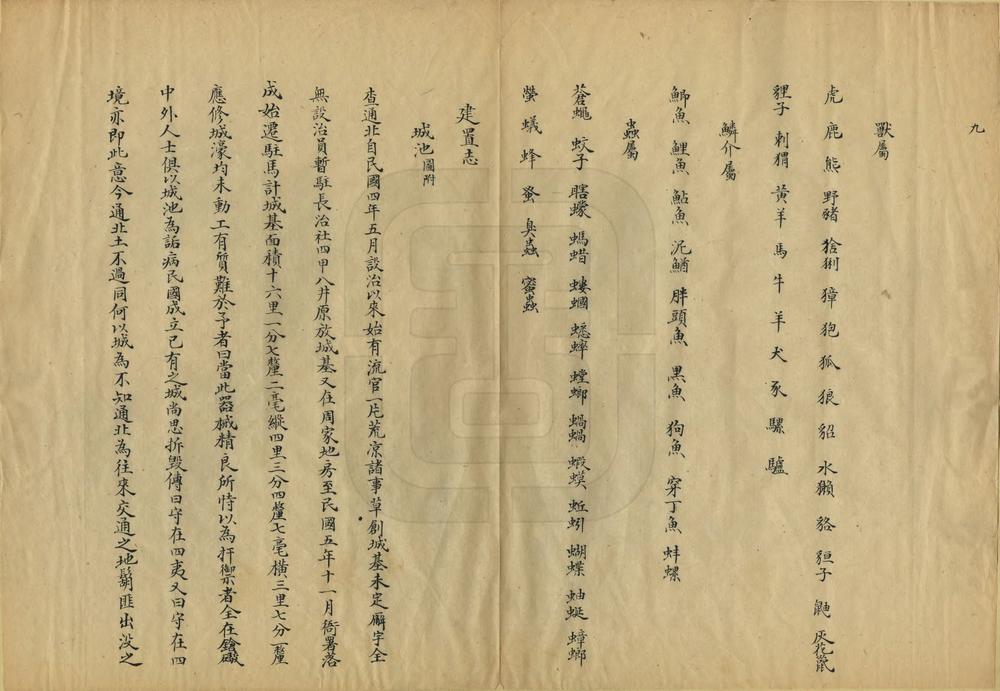 九
獸屬
虎 鹿 熊 野豬 猞猁 獐 狍 狐 狼 貂 水獺 貉 貆子 鼬 灰花鼠
貍子 刺猬 黃羊 馬 牛 羊 犬 豕 騾 驢
鱗介屬
鯽魚 鯉魚 鮎魚 泥鰌 胖頭魚 黑魚 狗魚 穿丁魚 蚌螺
蟲屬
蒼蠅 蚊子 瞎蠓 螞蜡 螻蟈 蟋蟀 螳螂 蝸蝸 蝦蟆 蚯蚓 蝴蝶 蚰蜒 蟑螂
螢 蟻 蜂 蚤 臭蟲 蜜蟲
建置志
城池圖附
查通北自民國四年五月設治以來始有流官一片荒涼諸事草創城基未定廨宇全
無設治員暫駐長治社四甲八井原放城基又住周家地房至民國五年十一月衙署落
成始遷駐焉計城基面積十六里一分七釐二毫縱四里三分四釐七毫橫三里七分二釐
應修城濠均未動工有質難於予者曰當此器械精良所恃以為扞禦者全在鎗礮
中外人士俱以城池為詬病民國成立已有之城尚思拆毀傳曰守在四夷又曰守在四
境亦即此意今通北土不過同何以城為不知通北為往來交通之地鬍匪出沒之